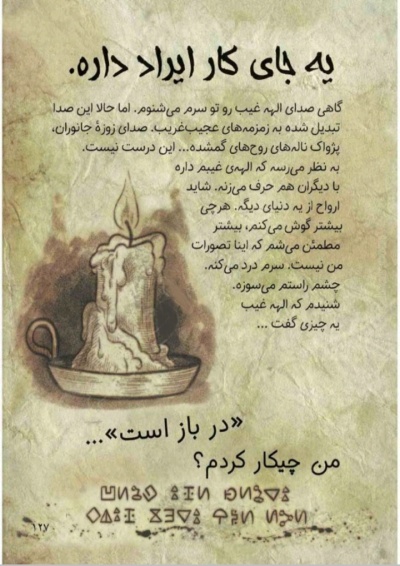 یه جای کار ایراد داره.
گاهی صدای الهه غیب رو تو سرم می‌شنوم. اما حالا این صدا
تبدیل شده به زمزمه‌های عجیب‌غریب. صدای زوزهٔ جانوران،
پژواک ناله‌های روح‌های گمشده... این درست نیست.
به نظر می‌رسه که الهه‌ی غیبم داره
با دیگران هم حرف می‌زنه. شاید
ارواح از یه دنیای دیگه. هرچی
بیشتر گوش می‌کنم، بیشتر
مطمئن می‌شم که اینا تصورات
من نیست. سرم درد می‌کنه.
چشم راستم می‌سوزه.
شنیدم که الهه غیب
یه چیزی گفت ...
«در باز است»...
من چیکار کردم؟
۱۲۷